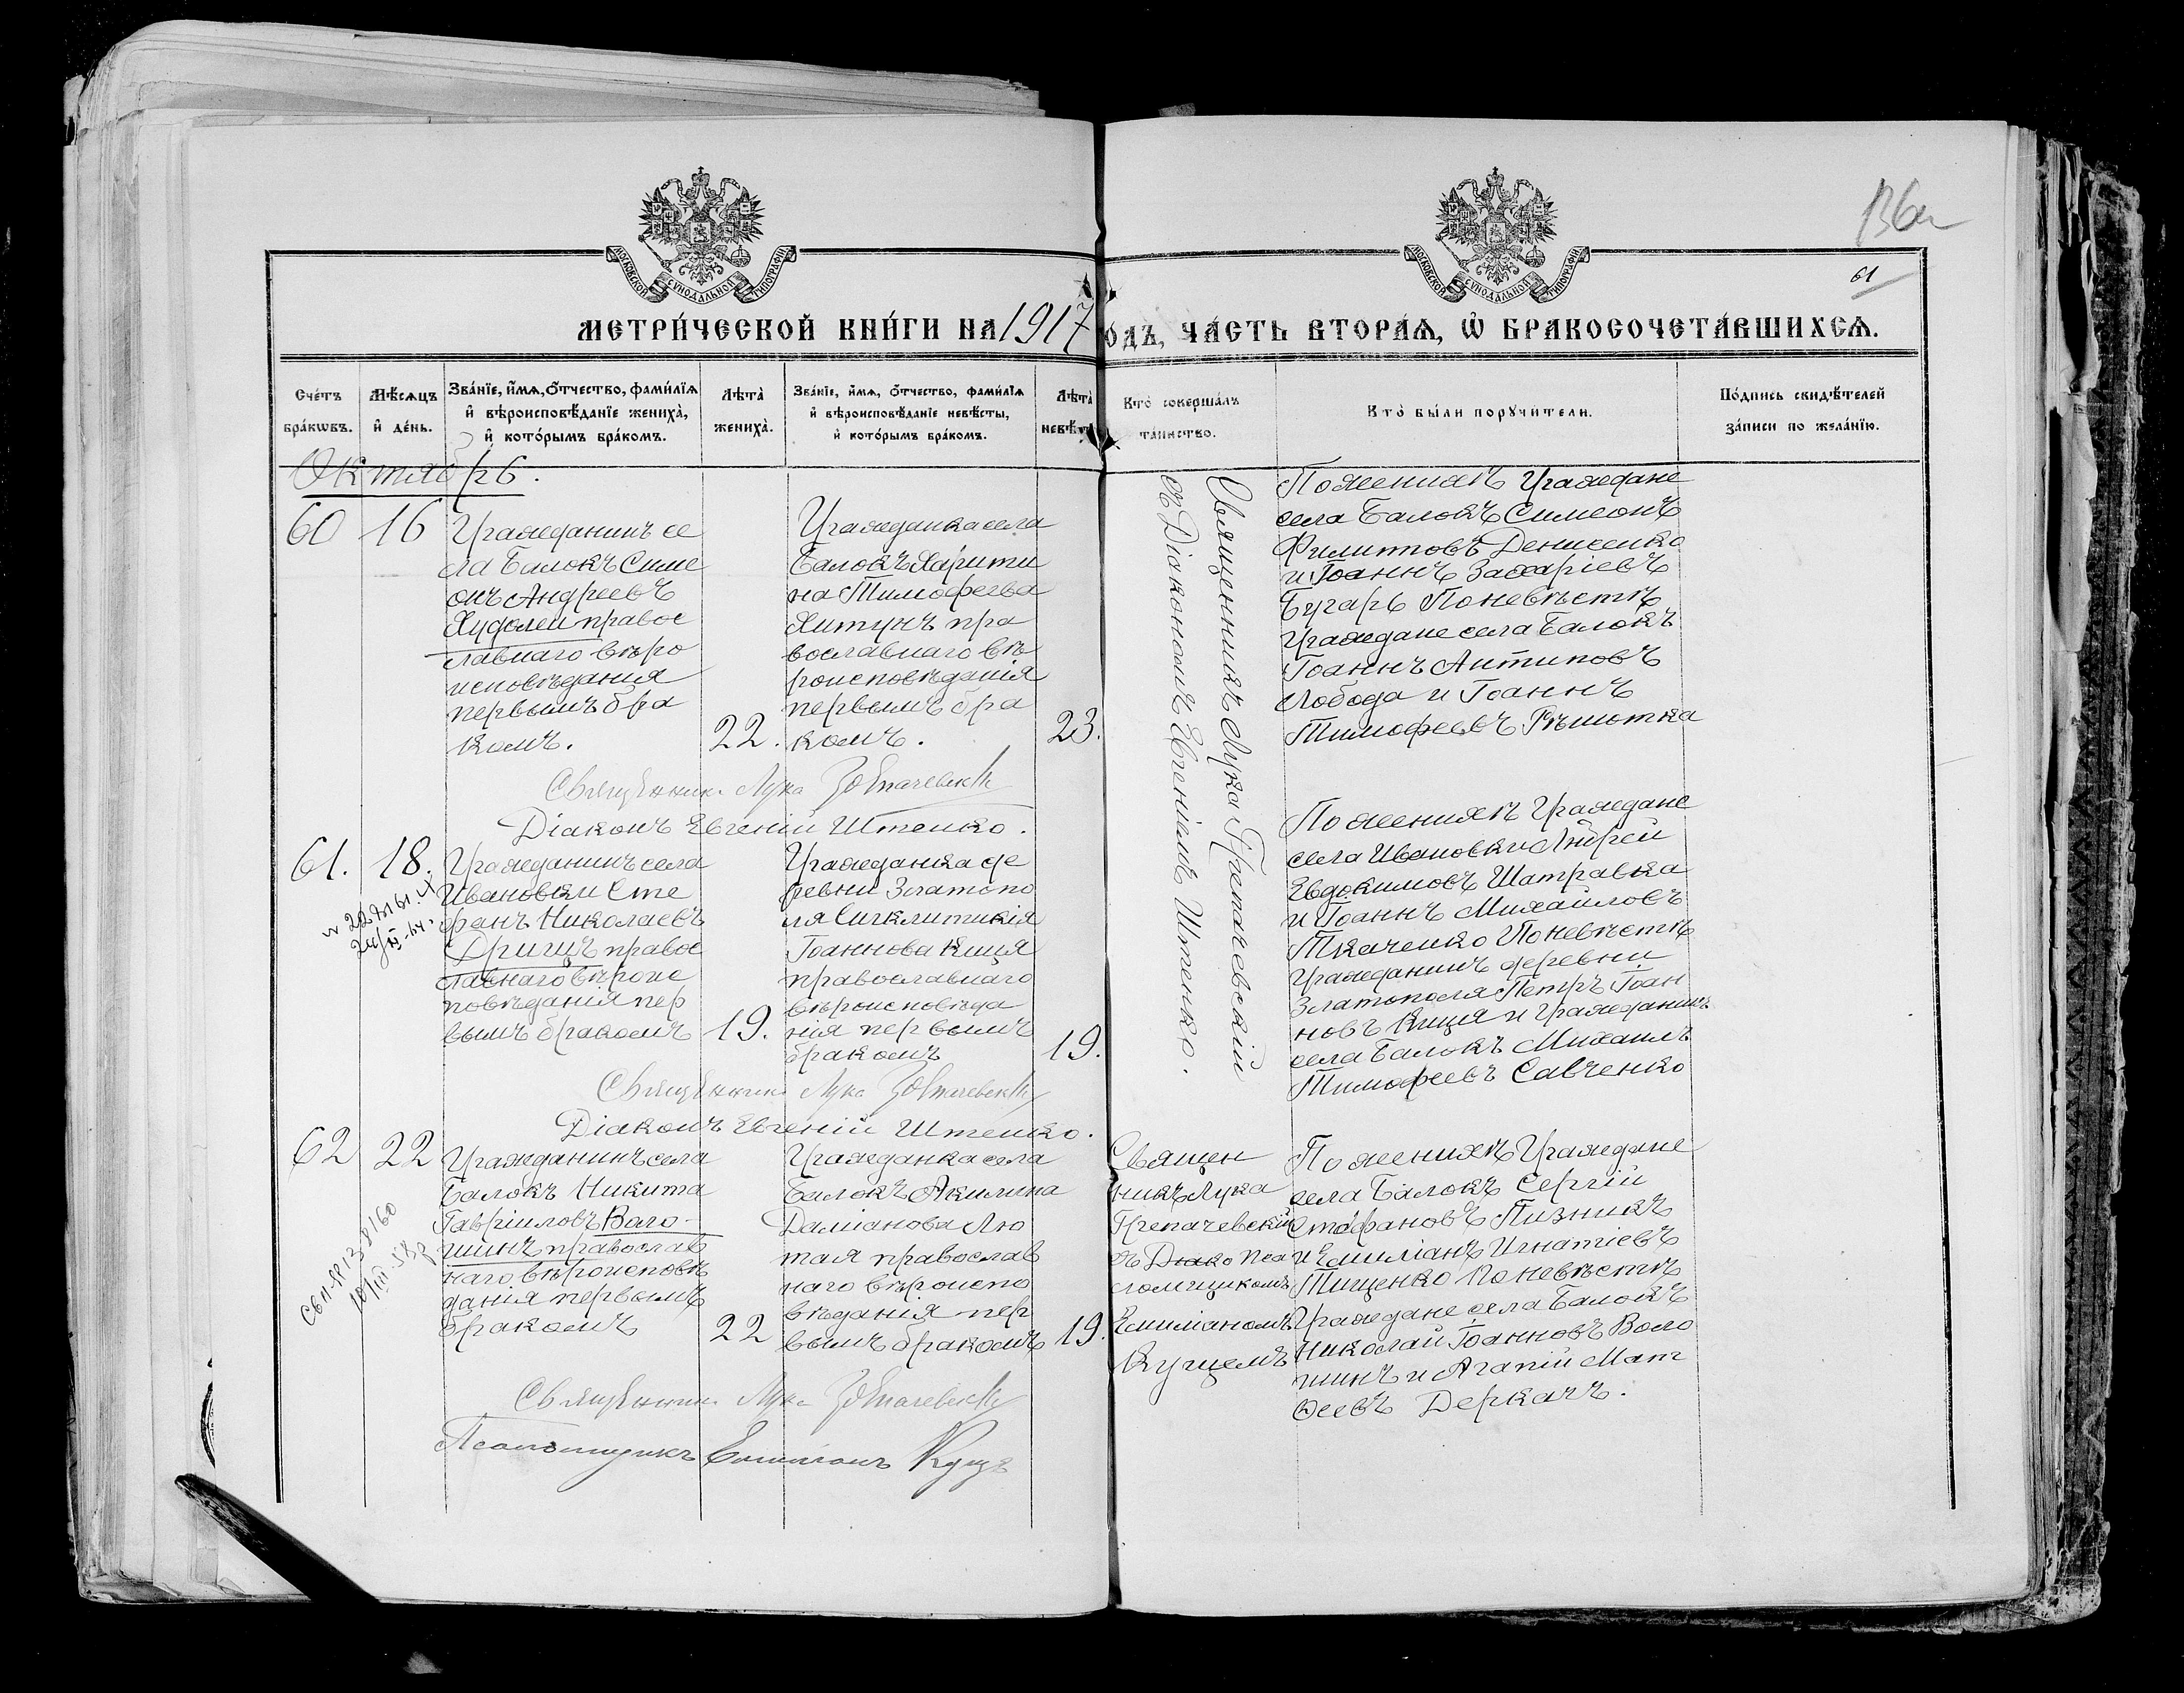 МОСКОВСКОЙ СѴНОДАЛЬНОЙ ТИПОГРАФІИ
МОСКОВСКОЙ СѴНОДАЛЬНОЙ ТИПОГРАФІИ
61
МЕТРИ́ЧЕСКОЙ КНИ́ГИ НА 1917 ОДЪ, ЧА́СТЬ ВТОРА́Ѧ, Ѡ҆ БРАКОСОЧЕТА́ВШИХСѦ.
Сче́тъ бра́кѡвъ.
Мѣ́сѧцъ и҆ де́нь.
Зва́нїе, и҆́мѧ, ѻ҆́тчество, фами́лїѧ и҆ вѣроисповѣ́данїе жениха̀, и҆ кото́рымъ бра́комъ.
Лѣта̀ жениха̀.
Зва́нїе, и҆́мѧ, ѻ҆́тчество, фами́лїѧ и҆ вѣроисповѣ́данїе невѣ́сты, и҆ кото́рымъ бра́комъ.
Лѣта̀ невѣ́ст
Кто̀ соверша́лъ та́инство.
Кто̀ бы́ли порꙋчи́тели.
По́дпись свидѣ́телей за́писи по жела́нїю.
Октябрь.
60
16
Гражданинъ се
ла Балокъ Симе
онъ Андреевъ
Худолей правос
лавнаго веро
исповѣдания
первымъ бра
комъ.
22.
Гражданка села
Балокъ Харити
на Тимофеева
Хитунъ пра
вославнаго вѣ
роисповѣданія
первымъ бра
комъ.
23.
Священникъ Лука Грепачевскій
съ Діакономъ Евгеніемъ Штепко.
По женихѣ Граждане
села Балокъ Симеонъ
Филипповъ Денисенко
и Іоаннъ Захаріевъ
Бугарь По невѣстѣ
граждане села Балокъ
Іоаннъ Антиповъ
Лобода и Іоаннъ
Тимофеевъ Рѣшотка
Священникъ Лука Грепачевскій
Діаконъ Евгеній Штепко.
61.
18.
Гражданинъ села
Ивановки Сте
фанъ Николаевъ
Дрищъ правос
лавнаго вѣроис
повѣданія пер
вымъ бракомъ
19.
Гражданка де
ревни Златопо
ля Сигклитикія
Іоаннова Киця
православнаго
вѣроисповѣда
нія первымъ
бракомъ
19.
По женихѣ Граждане
села Ивановки Андрей
Евдокимовъ Шатравка
и Іоаннъ Михайловъ
Ткаченко По невѣстѣ
Гражданинъ деревни
Златополя Петръ Іоан
новъ Киця и гражданинъ
села Балокъ Михаилъ
Тимофеевъ Савченко
Священникъ Лука Грепачевскій
Діаконъ Евгеній Штепко.
62
22
Гражданинъ села
Балокъ Никита
Гавріиловъ Воло-
шинъ православ
наго вѣроисповѣ
данія первымъ
бракомъ
22
Гражданка села
Балокъ Акилина
Даміанова Лю
тая православ
наго вѣроиспо
вѣданія пер
вымъ бракомъ
19.
Священ
никъ Лука
Грепачевскій
съ Діако Пса
ломщикомъ
Емиліаномъ
Куцемъ
По женихѣ Граждане
села Балокъ Сергій
Стефановъ Пизникъ
и Емиліанъ Игнатіевъ
Тищенко По невѣстѣ
Граждане села Балокъ
Николай Іоанновъ Воло
шинъ и Агапій Мат
ѳеевъ Деркачъ.
Священникъ Лука Грепачевскій
Псаломщикъ Емиліанъ Куцъ